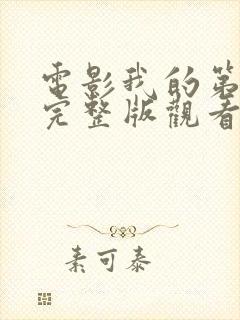 電影我的第
完整版觀看
素可泰